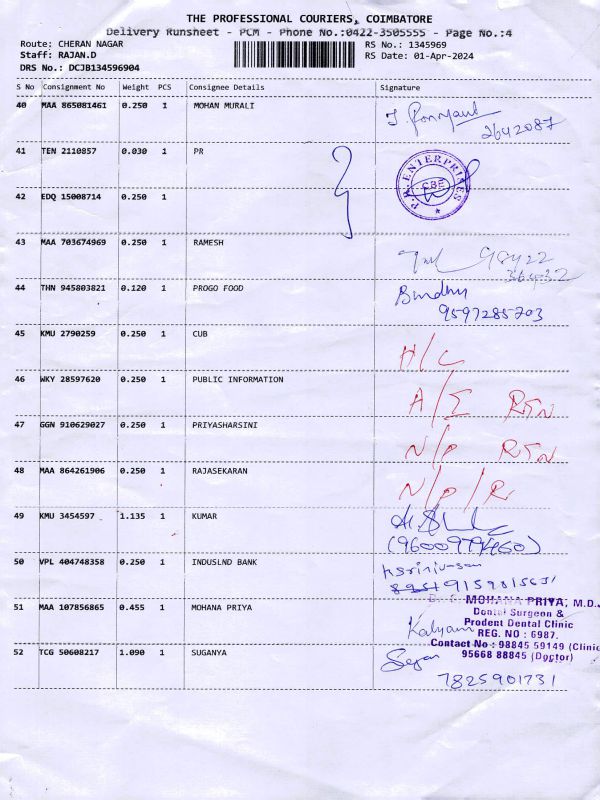 THE PROFESSIONAL COURIERS, COIMBATORE
Delivery Runsheet - PCM - Phone No.:0422-3505555 - Page No.:4
Route: CHERAN NAGAR RS No.: 1345969
Staff: RAJAN.D RS Date: 01-Apr-2024
DRS No.: DCJB134596904
S No Consignment No Weight PCS Consignee Details Signature
40 MAA 865081461 0.250 1 MOHAN MURALI
2642087
41 TEN 2110857 0.030 1 PR
P.R. ENTERPRISES
CBE
42 EDQ 15008714 0.250 1
43 MAA 703674969 0.250 1 RAMESH
98422
36432
44 THN 945803821 0.120 1 PROGO FOOD
Bindhu
9597285703
45 KMU 2790259 0.250 1 CUB
H/C
46 WKY 28597620 0.250 1 PUBLIC INFORMATION
RTN
47 GGN 910629027 0.250 1 PRIYASHARSINI
N/P RTN
48 MAA 864261906 0.250 1 RAJASEKARAN
N/P/R
49 KMU 3454597 1.135 1 KUMAR
50 VPL 404748358 0.250 1 INDUSLND BANK
51 MAA 107856865 0.455 1 MOHANA PRIYA
MOHANA PRIYA, M.D.
Dental Surgeon &
Prodent Dental Clinic
REG. NO : 6987.
Contact No : 98845 59149 (Clinic
95668 88845 (Doctor)
Kalyani
52 TCG 50608217 1.090 1 SUGANYA
7825901731